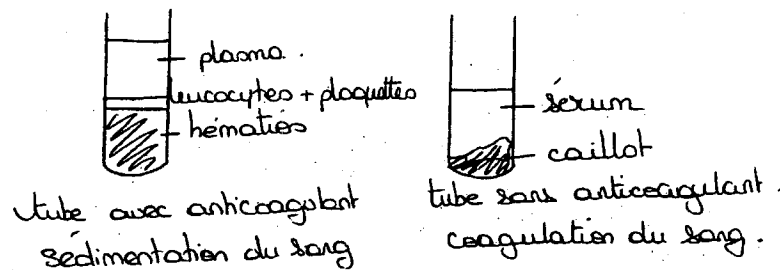 plasma.
leucocytes + plaquettes
hématies
tube avec anticoagulant
sédimentation du sang
sérum
caillot
tube sans anticoagulant.
coagulation du sang.